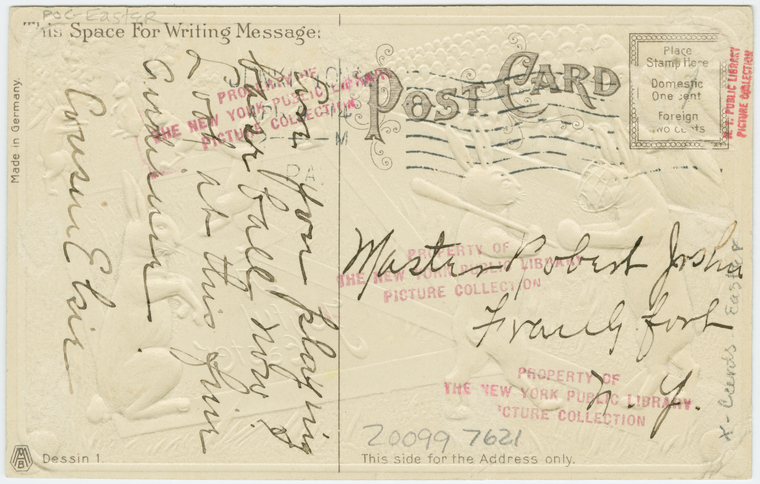 POC-Easter
This Space For Writing Message:
Are you playing
base ball now?
Look at this fine
audience.
Cousin Elsie
Made in Germany.
Dessin 1
POST CARD
Place
Stamp Here
Domestic
One cent
Foreign
Two cents
N. Y. PUBLIC LIBRARY
PICTURE COLLECTION
PROPERTY OF
THE NEW YORK PUBLIC LIBRARY
PICTURE COLLECTION
PA.
Master Robert Joshu
Frankfort
N. Y.
PROPERTY OF
THE NEW YORK PUBLIC LIBRARY
PICTURE COLLECTION
PROPERTY OF
THE NEW YORK PUBLIC LIBRARY
PICTURE COLLECTION
20099 7621
This side for the Address only.
X-Cards Easter